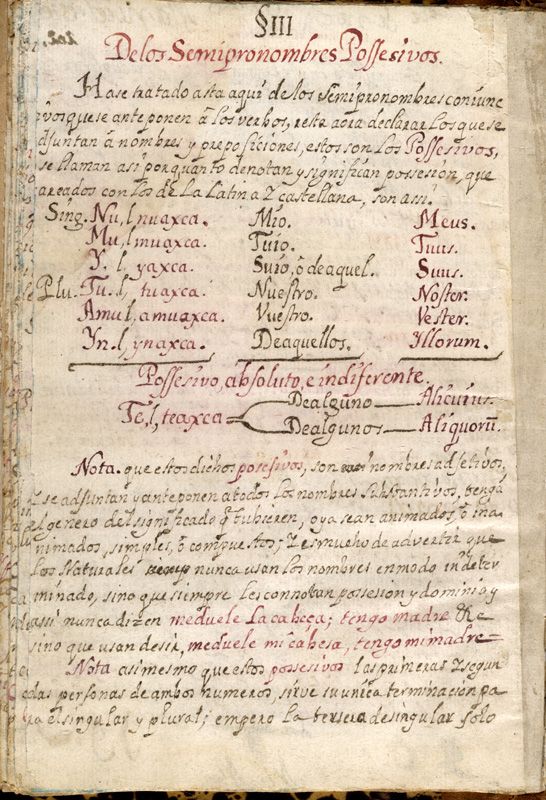 §III
De los Semipronombres Possesivos.
Hase tratado asta aqui de los semipronombres coniunc
ivos que se anteponen â los verbos, resta aora declarar los que se
adjuntan â nombres y preposiciones, estos son los Possesivos,
se llaman asi porquanto denotan y significan possesion, que
careados con los de la Latina y castellana, son assi.
Sing. Nu, l, nuaxca. Mio. Meus.
Mu, l, muaxca. Tuio. Tuus.
Y. l, yaxca. Suio, ô de aquel. Suus.
Plu. Tu. l, tuaxca. Nuestro. Noster.
Amu, l, amuaxca. Vuestro. Vester.
Yn. l, ynaxca. De aquellos. Yllorum.
Possesivo, absoluto, e indiferente.
De alguno Alicuius.
Te, l, teaxca
De algunos Aliquorũ.
Nota. que estos dichos posesivos, son nombres adjetivos,
se adjuntan y anteponen a todos los nombres substantivos, tengã
el genero del significado q̃ tubieren, o ya sean animados ô ina
nimados, simples, ô compuestos; y es mucho de advertir que
los Naturales nunca usan los nombres en modo indeter
minado, sino que siempre les connotan possesion y dominio y
assi nunca dizen meduele la cabeça; tengo madre &c
sino que usan desir, meduele mi cabesa, tengo mi madre
Nota asimesmo que estos possesivos las primeras y segun
das personas de ambos numeros, sirve su unica terminacion pa
ra el singular y plural; empero la tersera de singular solo